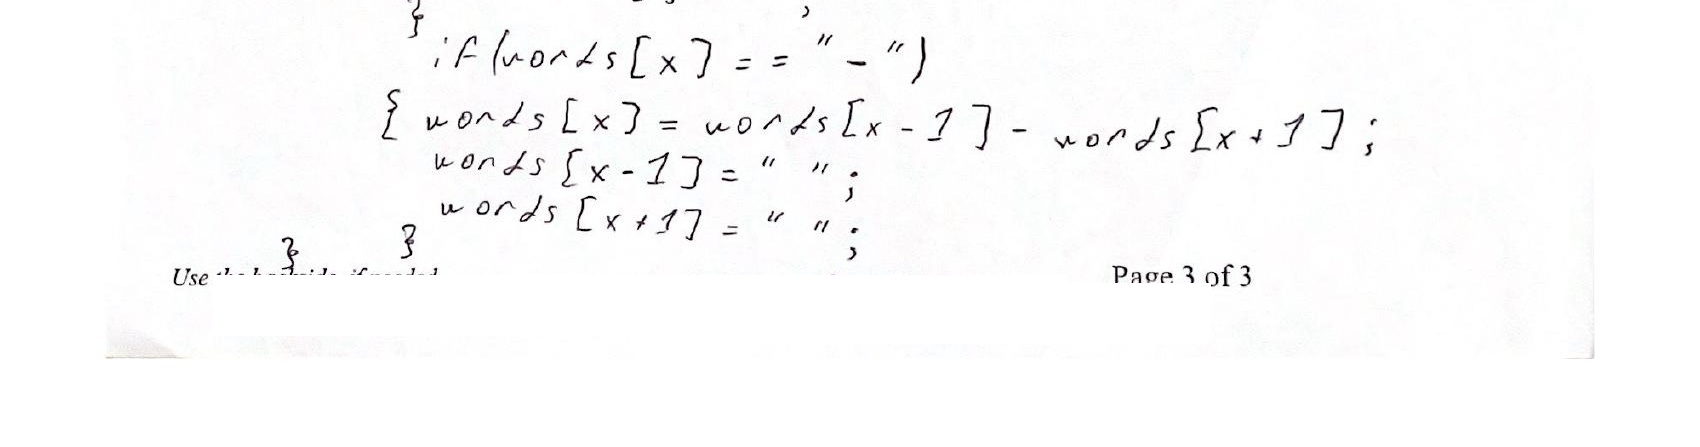 } ;
if(words[x] == "-")
{ words[x] = words[x-1] - words[x+1];
words[x-1] = " ";
words[x+1] = " ";
} }
Use Page 3 of 3